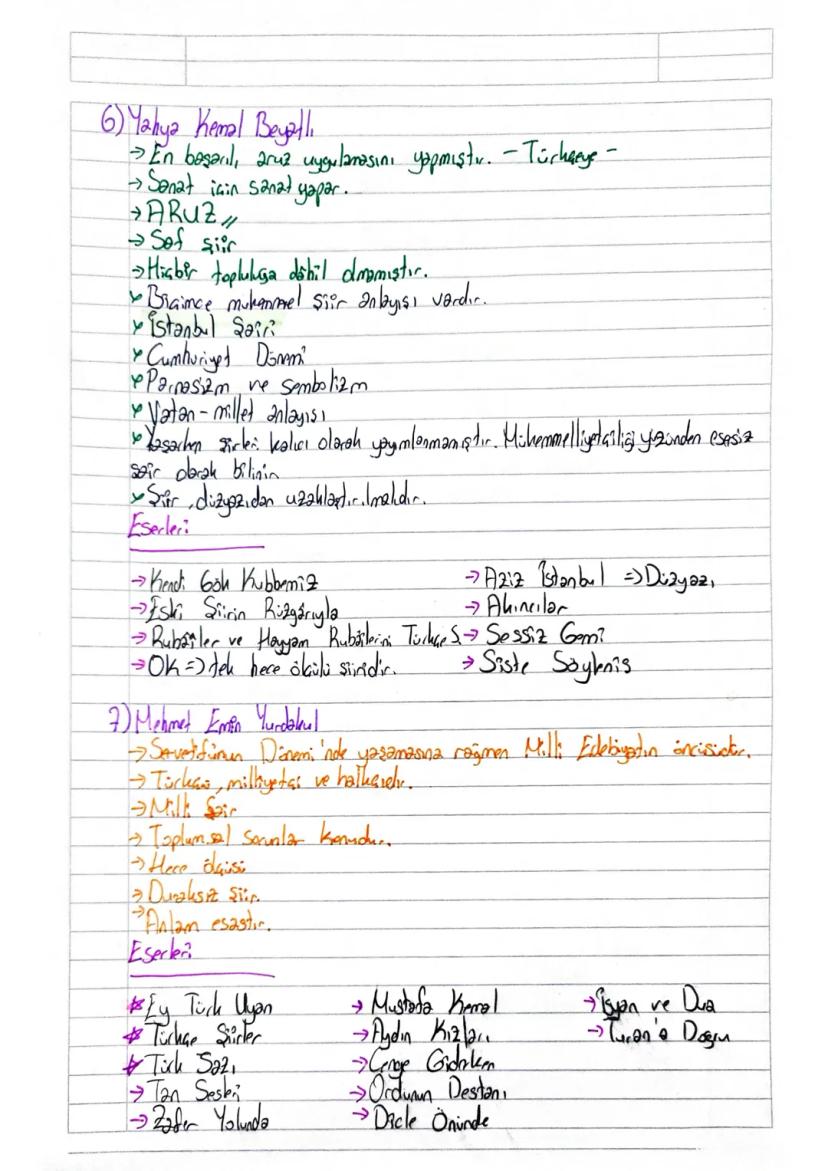 6) Yahya Kemal Beyatlı
→ En başarılı aruz uygulamasını yapmıştır. - Türkçeye -
→ Sanat için sanat yapar.
→ ARUZ //
→ Saf şiir
→ Hiçbir topluluğa dahil olmamıştır.
Biçimce mükemmel şiir anlayışı vardır.
İstanbul Şairi
Cumhuriyet Dönemi
Parnasizm ve sembolizm
Vatan - millet anlayışı
Yaşarken şiirleri kalıcı olarak yayımlanmamıştır. Mükemmelliyetçiliği yüzünden esersiz
şair olarak bilinir
Şiir, düzyazıdan uzaklaştırılmalıdır.
Eserleri
→ Kendi Gök Kubbemiz → Aziz İstanbul => Düzyazı
→ Eski Şiirin Rüzgarıyla → Akıncılar
→ Rubailer ve Hayyam Rubailerini Türkçe S. → Sessiz Gemi
→ OK => tek hece ölçülü şiiridir. → Siste Söyleniş
7) Mehmet Emin Yurdakul
→ Servetifünun Dönemi'nde yaşamasına rağmen Milli Edebiyatın öncüsüdür.
→ Türkçü, milliyetçi ve halkçıdır.
→ Milli Şair
→ Toplumsal sorunlar konudur.
→ Hece ölçüsü
→ Duraksız Şiir
→ Anlam esastır.
Eserleri
Ey Türk Uyan → Mustafa Kemal → İsyan ve Dua
Türkçe Şiirler → Aydın Kızları → Turan'a Doğru
Türk Sazı → Cenge Giderken
→ Tan Sesleri → Ordunun Destanı
→ Zafer Yolunda → Dicle Önünde